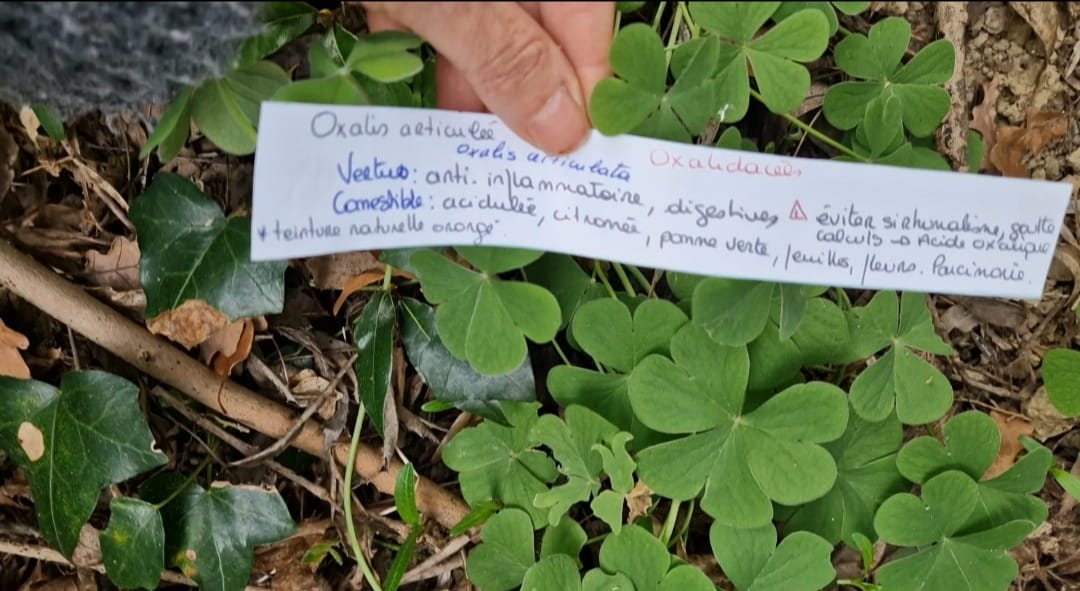 Oxalis articulée
oxalis articulata Oxalidacées
Vertus: anti. inflammatoire, digestives, ⚠ éviter si rhumatisme, goutte
calculs → Acide oxalique
Comestible: acidulée, citronnée, pomme verte, feuilles, fleurs. Parcimonie.
* teinture naturelle orangé.